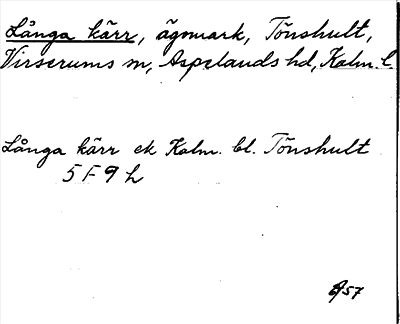 Långa kärr, ägomark, Tönshult,
Virserums sn, Aspelands hd, Kalm. l.
Långa kärr ek Kalm. bl. Tönshult
5 F 9 h
57